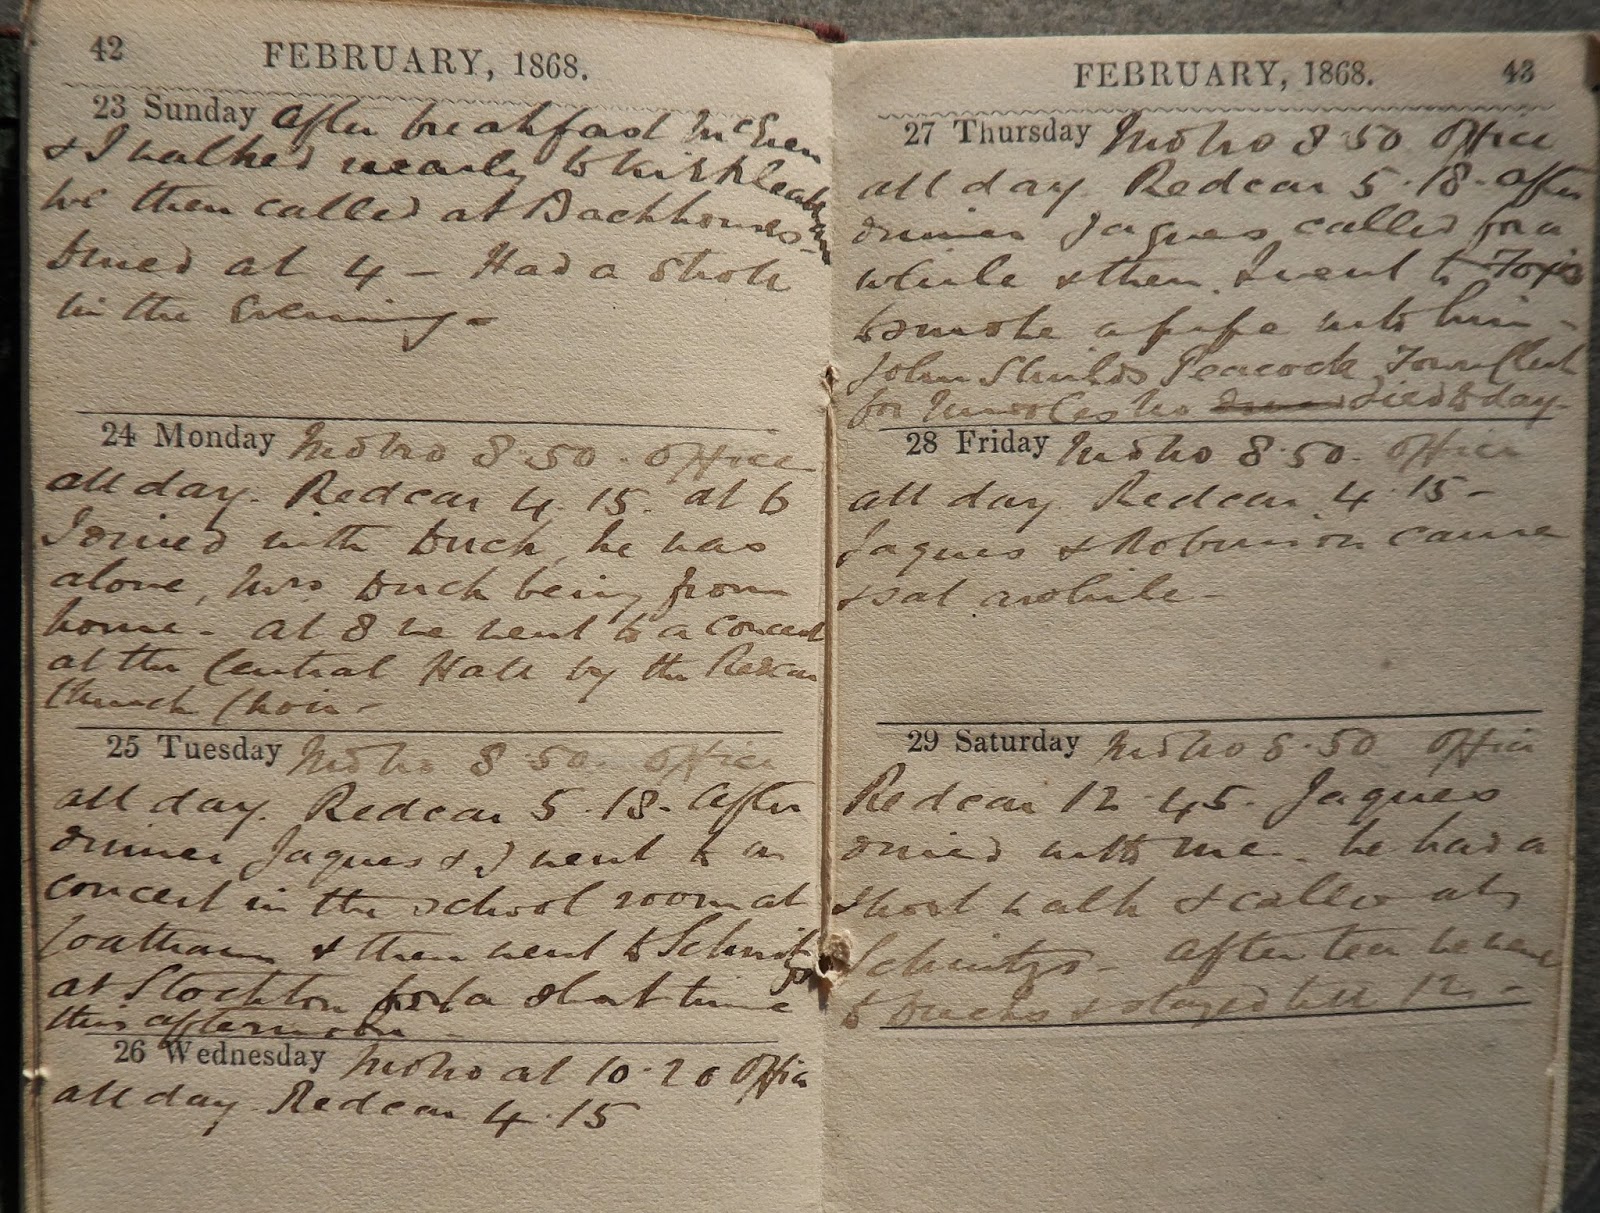 42
FEBRUARY, 1868.
23 Sunday After breakfast McEwen
& I walked nearly to Kirkleatham
we then called at Backhouses -
Dined at 4 - Had a Stroll
in the Evening -
24 Monday Mdbro 8.50. Office
all day. Redcar 4.15. at 6
I dined with Buck, he was
alone, Mrs Buck being from
home - at 8 we went to a Concert
at the Central Hall by the Redcar
Church Choir -
25 Tuesday Mdbro 8.50. Office
all day. Redcar 5.18. After
dinner Jaques & I went to a
concert in the School room at
Coatham & then went to
at Stockton for a short time
this afternoon -
26 Wednesday Mdbro at 10.20 Office
all day. Redcar 4.15
FEBRUARY, 1868.
43
27 Thursday Mdbro 8 50 Office
all day. Redcar 5.18. After
dinner Jaques called for a
while & then I went to
to smoke a pipe with him -
John Shields Peacock Town Clerk
for Middlesbro died to day -
28 Friday Mdbro 8.50. Office
all day Redcar 4.15 -
Jaques & Robinson came
& sat awhile -
29 Saturday Mdbro 8.50 Office
Redcar 12.45. Jaques
dined with me. he had a
short walk & called at
After tea we went
to Bucks & stayed till 12 -